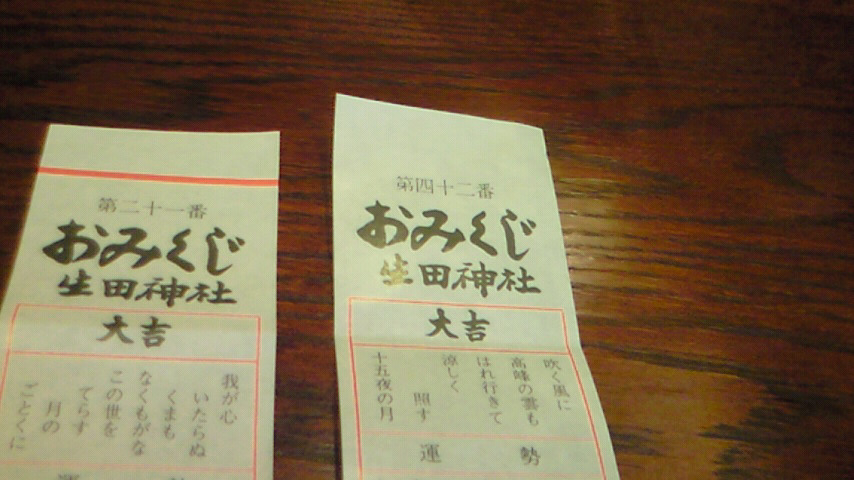 第二十一番
おみくじ
生田神社
大吉
我が心
いたらぬ
くまも
なくもがな
この世を
てらす
月の
ごとくに
第四十二番
おみくじ
生田神社
大吉
吹く風に
高峰の雲も
はれ行きて
涼しく
照す
十五夜の月
運勢